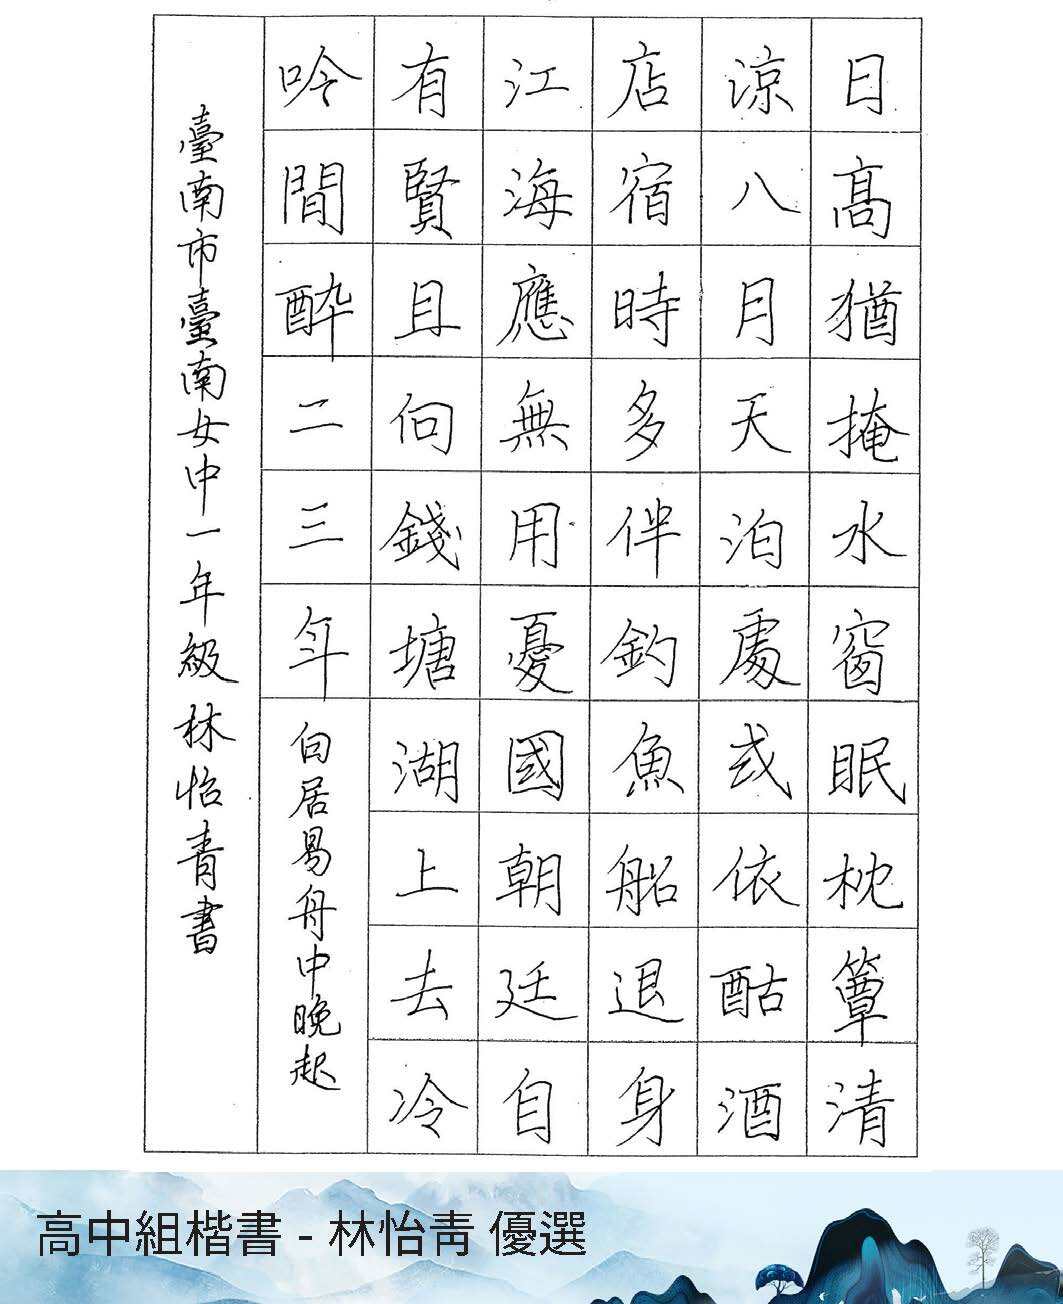 日高猶掩水窗眠枕簟清
涼八月天泊處或依酤酒
店宿時多伴釣魚船退身
江海應無用憂國朝廷自
有賢且向錢塘湖上去冷
吟閒醉二三年
白居易舟中晚起
臺南市臺南女中一年級林怡青書
高中組楷書 - 林怡青 優選